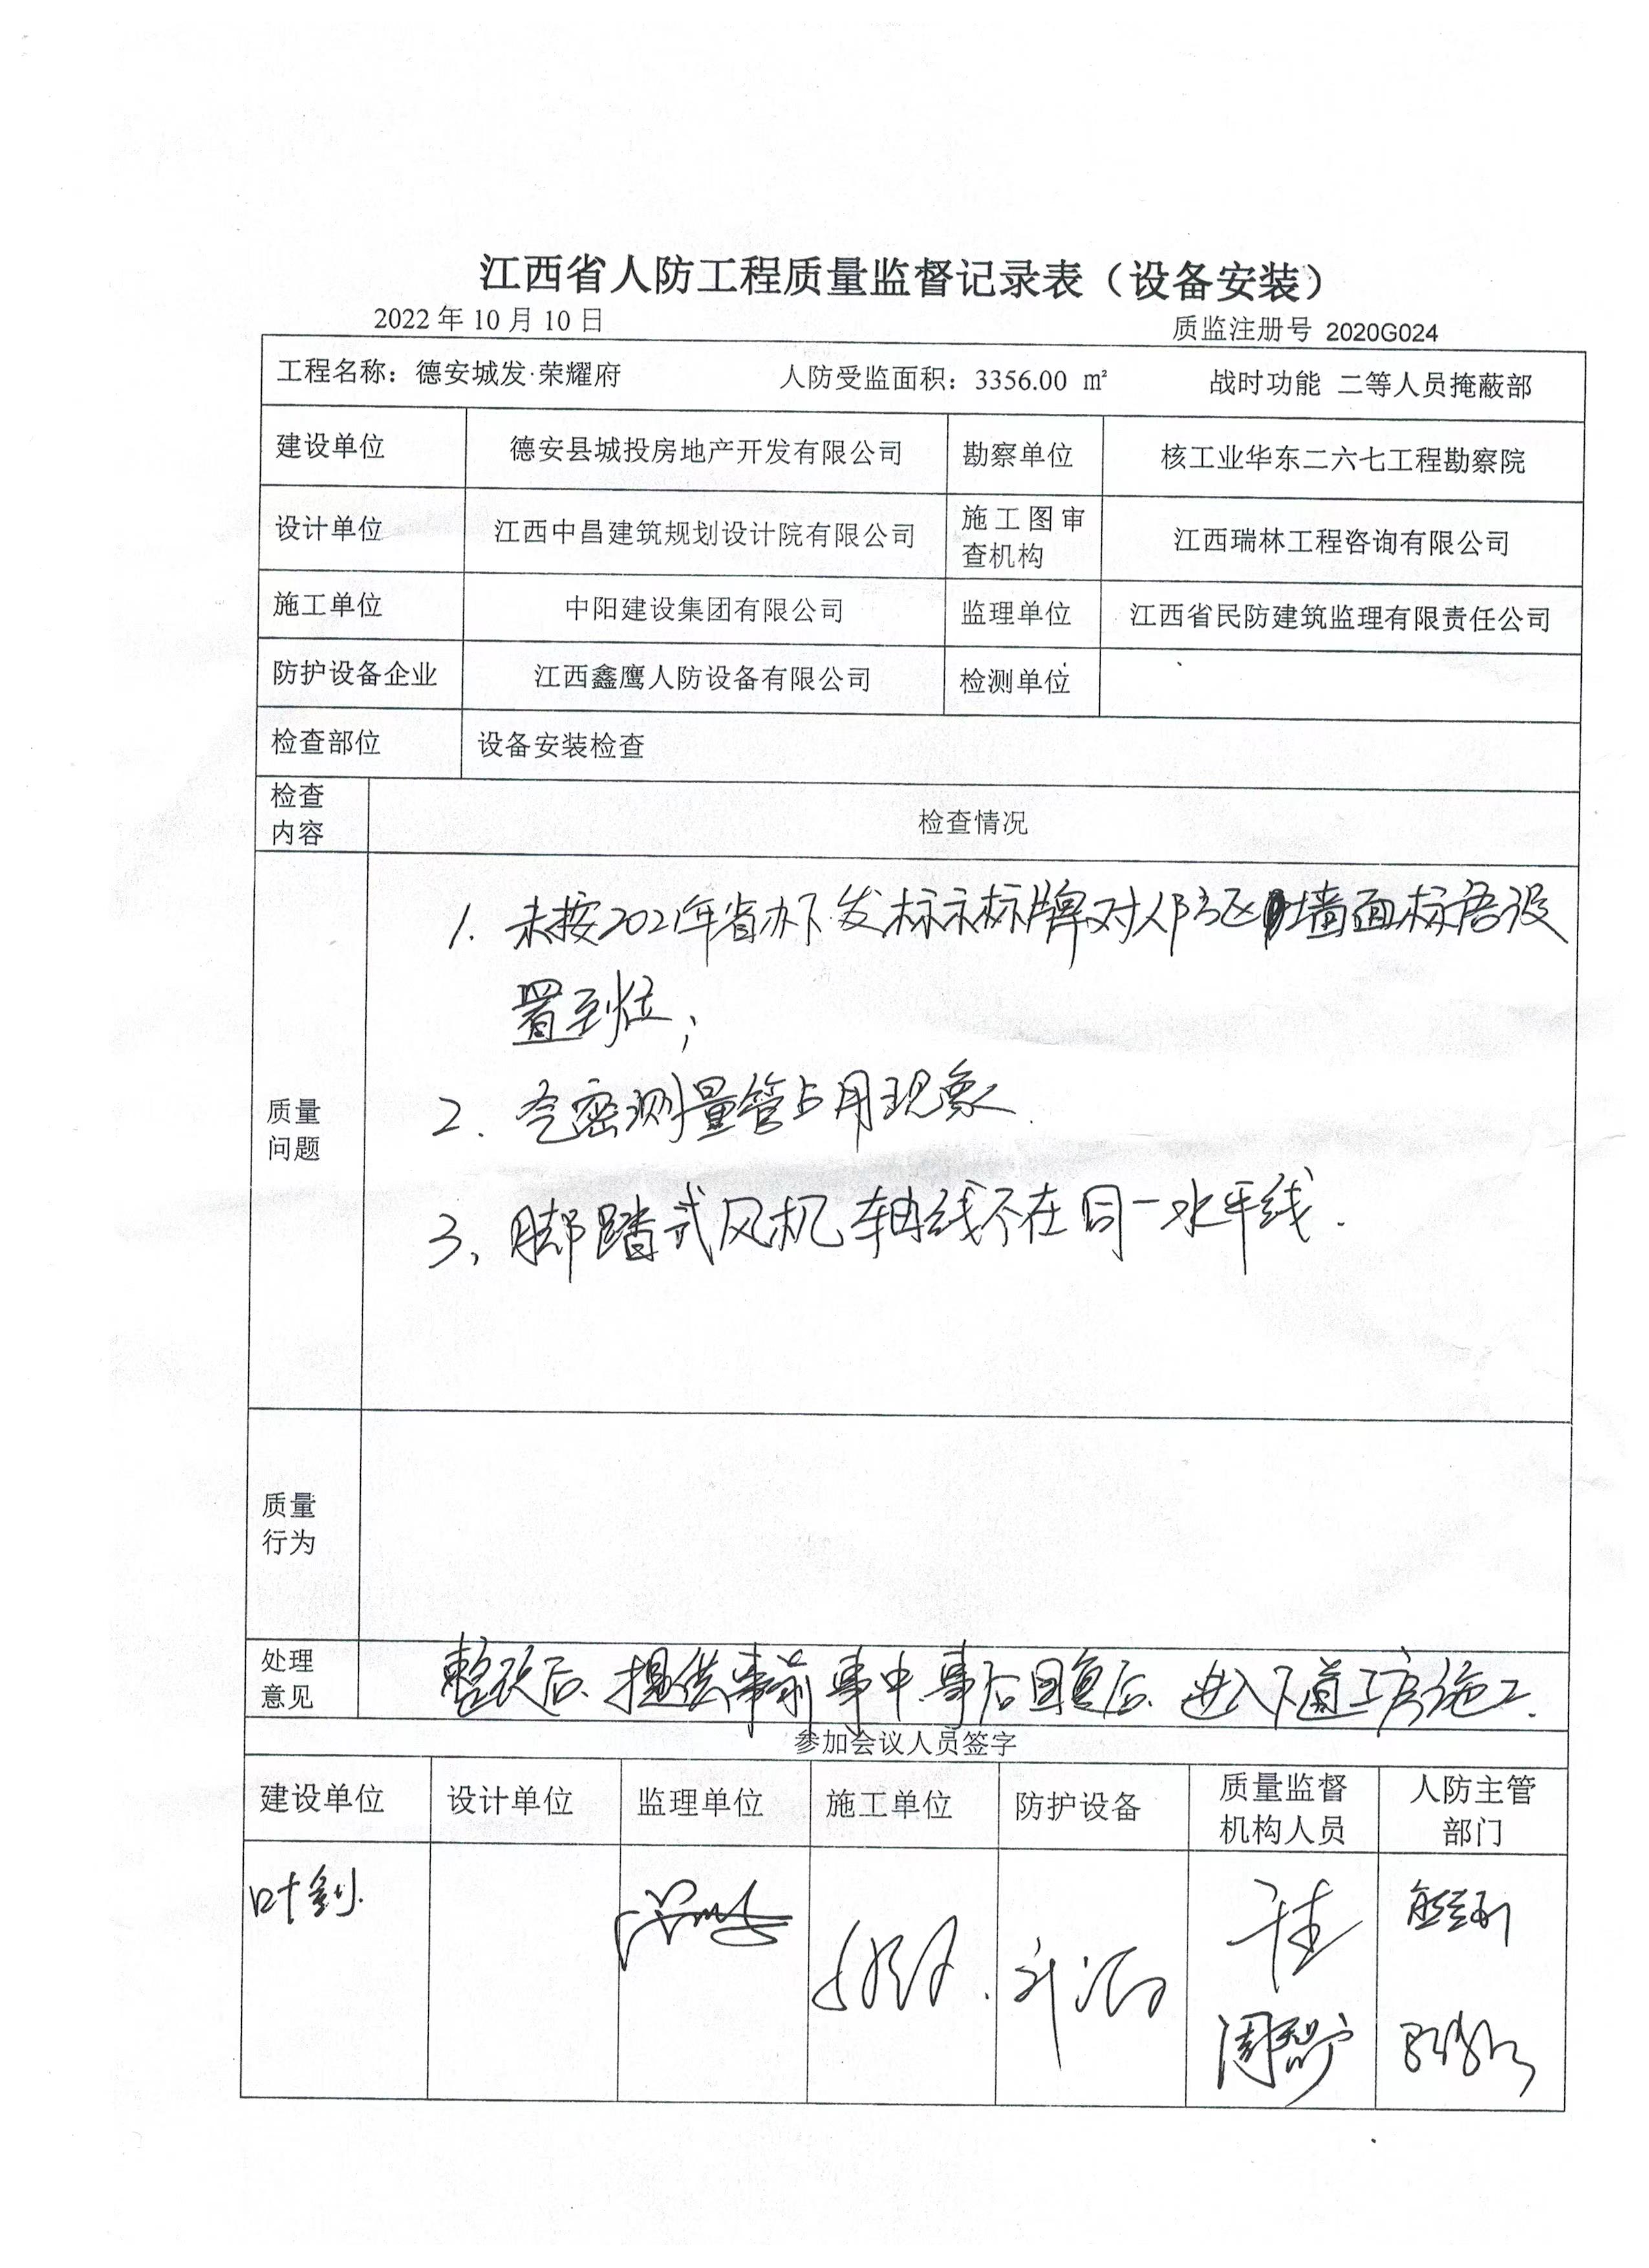 江西省人防工程质量监督记录表（设备安装）
2022 年 10 月 10 日
质监注册号 2020G024
工程名称：德安城发·荣耀府 人防受监面积：3356.00 ㎡ 战时功能 二等人员掩蔽部
建设单位 德安县城投房地产开发有限公司 勘察单位 核工业华东二六七工程勘察院
设计单位 江西中昌建筑规划设计院有限公司 施工图审查机构 江西瑞林工程咨询有限公司
施工单位 中阳建设集团有限公司 监理单位 江西省民防建筑监理有限责任公司
防护设备企业 江西鑫鹰人防设备有限公司 检测单位
检查部位 设备安装检查
检查内容 检查情况
质量问题
1. 未按2021年省办下发标示标牌对人防区墙面标语设
置到位；
2. 气密测量管占用现象.
3、脚踏式风机轴线不在同一水平线.
质量行为
处理意见 整改后、提供事前事中事后回复后、进入下道工序施工.
参加会议人员签字
建设单位 设计单位 监理单位 施工单位 防护设备 质量监督机构人员 人防主管部门
叶剑